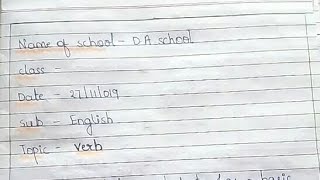 Name of school - D.A. school
class -
Date - 27/11/019
Sub - English
Topic - verb
basic